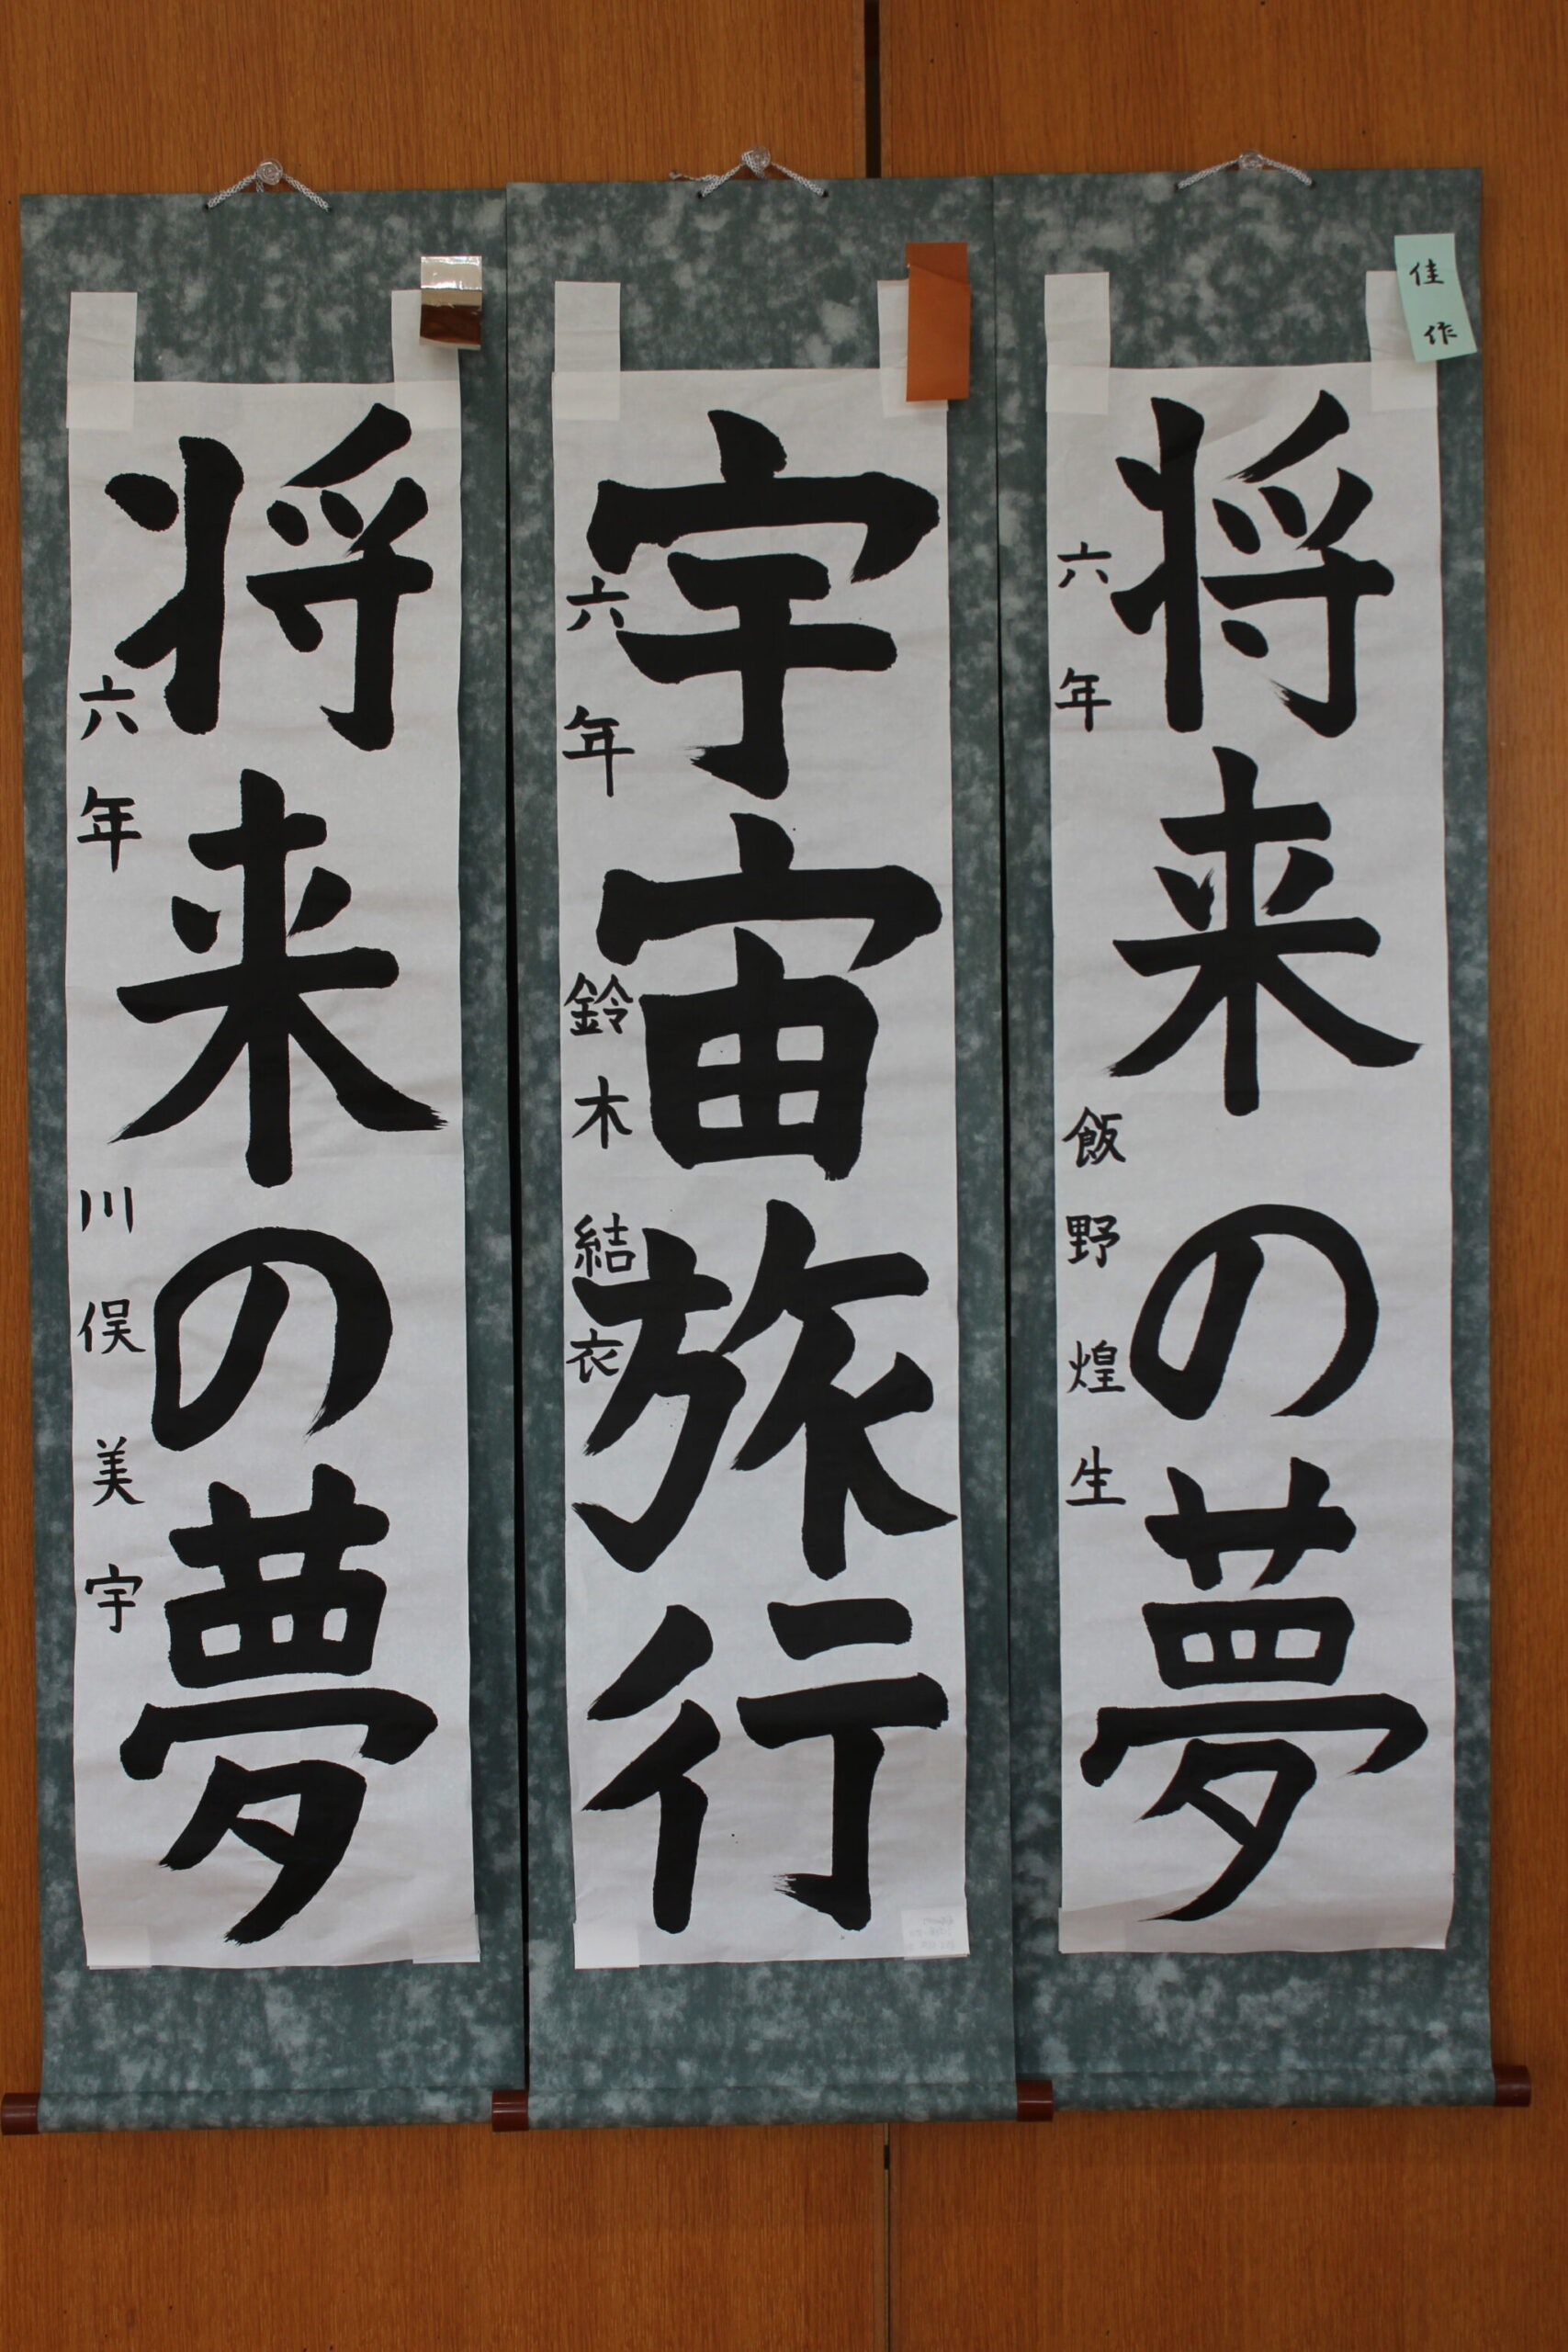 佳作
将来の夢
六年 飯野煌生
宇宙旅行
六年 鈴木結衣
将来の夢
六年 川俣美宇